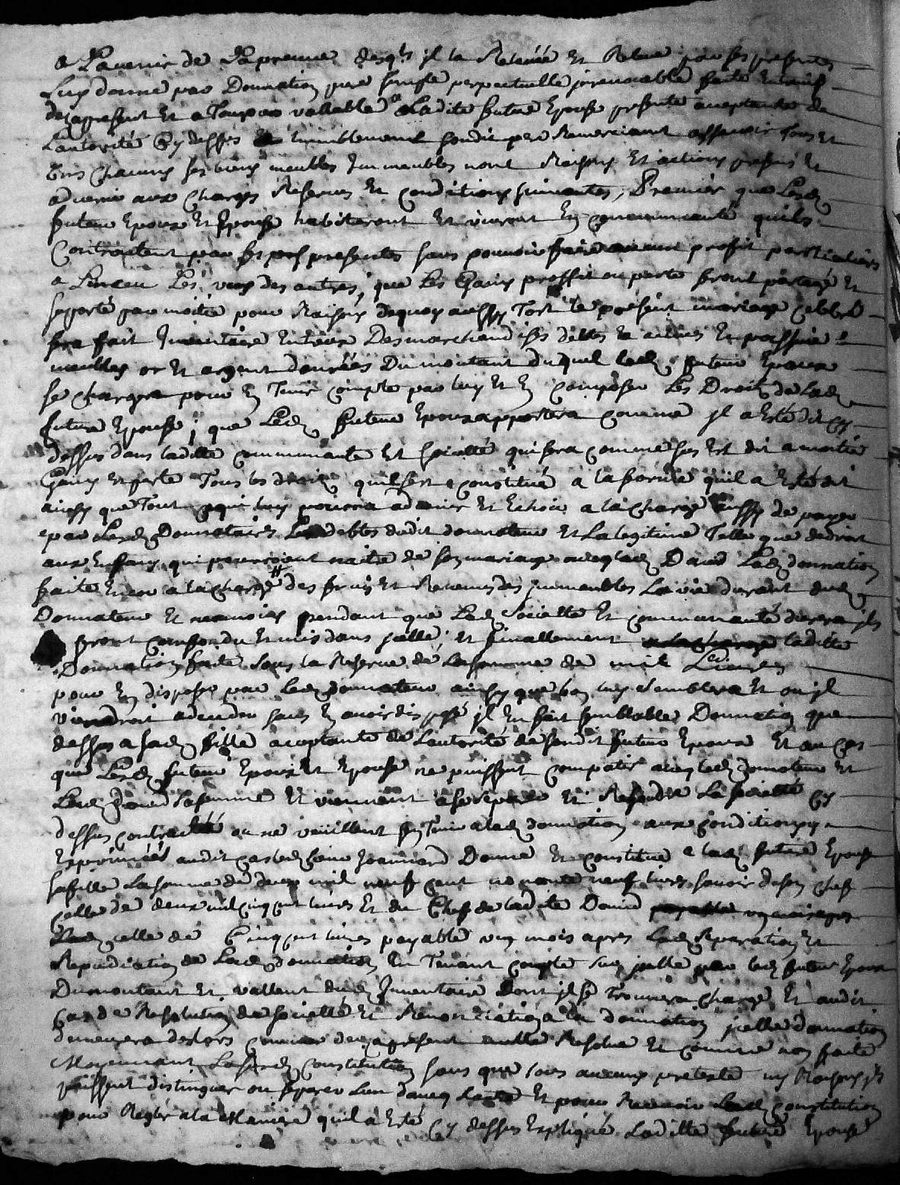 a Lavenir de la preuve desqls jl la Relevée et Releve par ses presentes
Luy donne par Donnation pure simple perpetuelle jrrevocable faite Entre vifs
dez apresent Et a Toujour vallable a Ladite future Epouse presente aceptante de
Lautorité Cy dessus humblement sondit pere Remerciant assavoir Tous et
Uns Chacuns ses biens meubles Immeubles noms Raisons Et actions presens Et
advenir aux Charges Reserves Et Conditions suivantes, Premier que Lesd
futeur Epoux Et Epouse habiteront Et vivront En communauté quils
Contractent par ses presentes sans pouvoir faire aucun profit particuliers
a Linceu Les uns des autres, que Les Gains proffit ou perte seront partagé Et
suporté par moitié pour Raisons dequoy aussy Tost le present mariage Celebré
sera fait Inventaire Entre eux Des marchandises debtes actives Et passives
meubles or Et argent denrées Du montant duquel led futeur Epoux
se Chargera pour En Tenir Compte par luy Et En Composer Les Droits de Lad
future Epouse; que Led futeur Epoux apportera comme jl a Esté dit Cy
dessus dans laditte communauté Et societté qui sera comme sus Est dit a moitié
Gains Et perte Tous les droits quil sest constitué a la forme quil a Esté dit
ainsy que Tout ce qui luy pourra advenir Et Echoir a la Charge aussy de payer
par Lesd Donnataires Les debtes dudit donnateur Et La legitime Telle que de droit
aux Enfans qui pourroient naitre de son mariage avec lad David Lad donnation
faite Encore a la charge des fruis Et Revenus des jmmeubles La vie durant dud
Donnateur Et neanmoins pendant que Lad Societté Et communauté durera jls
seront confondu Et mis dans jcelle; Et finallement laditte
Donnation faite sous la Reserve de La somme de mil Livres
pour En disposer par led donnateur ainsy que bon luy semblera Et ou jl
viendroit a deceder sans En avoir disposé jl En fait semblable Donnation que
dessus a sad fille aceptante de Lautorité de sondit futeur Epoux Et au Cas
que Lesd futeur Epoux Et Epouse ne puissent compatir avec led donnateur Et
Lad David sa femme Et viennent a se separer Et Resoudre La societté Cy
dessus contractée ou ne veuillent sen Tenir a lad donnation aux conditions Cy
Exprimées audit cas led sieur Donne Et Constitue a lad future Epouse
sa fille La somme de deux mil neuf cent nonante neuf livres savoir de son chef
Celle de deux mil cinq cent livres Et du Chef de ladite David
Lad Celle de Cinq cent livres payable un mois apres lad separation Et
Repudiation de Lad donnation En Tenant Compte sur jcelle par led futeur Epoux
Du montant Et vallent dud Inventaire dont jl se Trouvera Chargé Et audit
Cas de Resolution de societté Et Renonciation a la donnation jcelle donnation
demeurera deslors comme dez apresent nulle Resolue Et comme non faite
Moyennant Lasusd Constitution sans que sous aucuns pretexte ny Raisons jls
puissent distinguer ou separer Lun davec Lautre Et pour Recevoir Lad constitution
pour Regir a la maniere quil a Eté Cy dessus Expliqué Laditte future Epouse